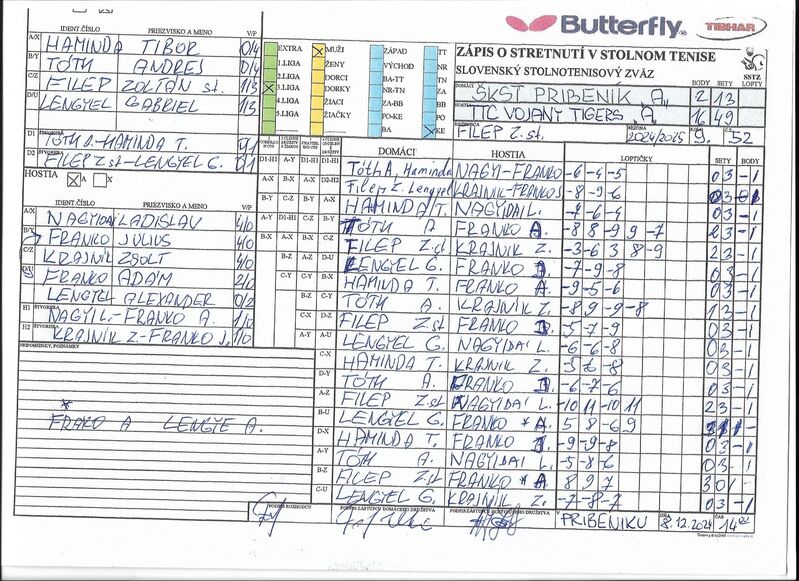 Butterfly
TIBHAR
IDENT.ČÍSLO PRIEZVISKO A MENO V/P
A/X HAMINDA TIBOR 0/4
B/Y TÓTH ANDREJ 0/4
C/Z FILEP ZOLTÁN st. 1/3
D/U LENGYEL GABRIEL 1/3
D1 TÓTH A.-HAMINDA T. 0/1
D2 FILEP Z.st-LENGYEL G. 0/1
HOSTIA A X
IDENT.ČÍSLO PRIEZVISKO A MENO V/P
A/X NAGYIDAI LADISLAV 4/0
B/Y FRANKO JÚLIUS 4/0
C/Z KRAJNIK ZSOLT 4/0
D/U FRANKO ADAM 2/0
LENGYEL ALEXANDER 0/2
H1 NAGYI L.-FRANKO A. 1/0
H2 KRAJNIK Z-FRANKO J. 1/0
PRIPOMIENKY, POZNÁMKY
*
FRAKO A LENGYE A.
EXTRA
1.LIGA
2.LIGA
3.LIGA
4.LIGA
5.LIGA
MUŽI
ŽENY
DORCI
DORKY
ŽIACI
ŽIAČKY
ZÁPAD
VÝCHOD
BA-TT
NR-TN
ZA-BB
PO-KE
BA
TT
NR
TN
ZA
BB
PO
KE
ZÁPIS O STRETNUTÍ V STOLNOM TENISE
SLOVENSKÝ STOLNOTENISOVÝ ZVÄZ
SSTZ
BODY SETY LOPTY
ŠKST PRIBENÍK "A" 2 13
TTC VOJANY TIGERS "A" 16 49
FILEP Z. st. 2024/2025 9. 52
DOMÁCI HOSTIA LOPTIČKY SETY BODY
D1-H1 TÓTH A, Haminda NAGY-FRANKO -6 -4 -5 03 -1
D2-H2 Filep Z. Lengyel KRAJNIK-FRANKO J -8 -9 -6 03 -1
HAMINDA T. NAGYIDAI L. -7 -6 -4 03 -1
TÓTH A FRANKO A. -8 8 9 -9 -7 23 -1
FILEP Z.st KRAJNIK Z. -3 -6 3 8 -9 23 -1
LENGYEL G. FRANKO J. -7 -9 -8 03 -1
HAMINDA T. FRANKO A. -9 -5 -6 03 -1
TÓTH A. KRAJNIK Z. -8 9 -9 -8 13 -1
FILEP Z.st FRANKO J. -5 -7 -9 03 -1
LENGYEL G. NAGYIDAI L. -6 -6 -8 03 -1
C-X HAMINDA T. KRAJNIK Z. -5 -6 -8 03 -1
D-Y TÓTH A. FRANKO J. -6 -7 -6 03 -1
A-Z FILEP Z.st NAGYIDAI L. -10 11 -10 11 23 -1
B-U LENGYEL G. FRANKO *A 5 8 -6 9 31 1
D-X HAMINDA T. FRANKO J. -9 -9 -8 03 -1
A-Y TÓTH A. NAGYIDAI L. -5 -8 -6 03 -1
B-Z FILEP Z.st FRANKO *A 8 9 7 30 1
C-U LENGYEL G. KRAJNIK Z. -7 -8 -7 03 -1
PODPIS ROZHODCU PODPIS ZÁSTUPCU DOMÁCEHO DRUŽSTVA PODPIS ZÁSTUPCU HOSŤUJÚCEHO DRUŽSTVA V PRIBENIKU DŇA 8.12.2024 ČAS 14